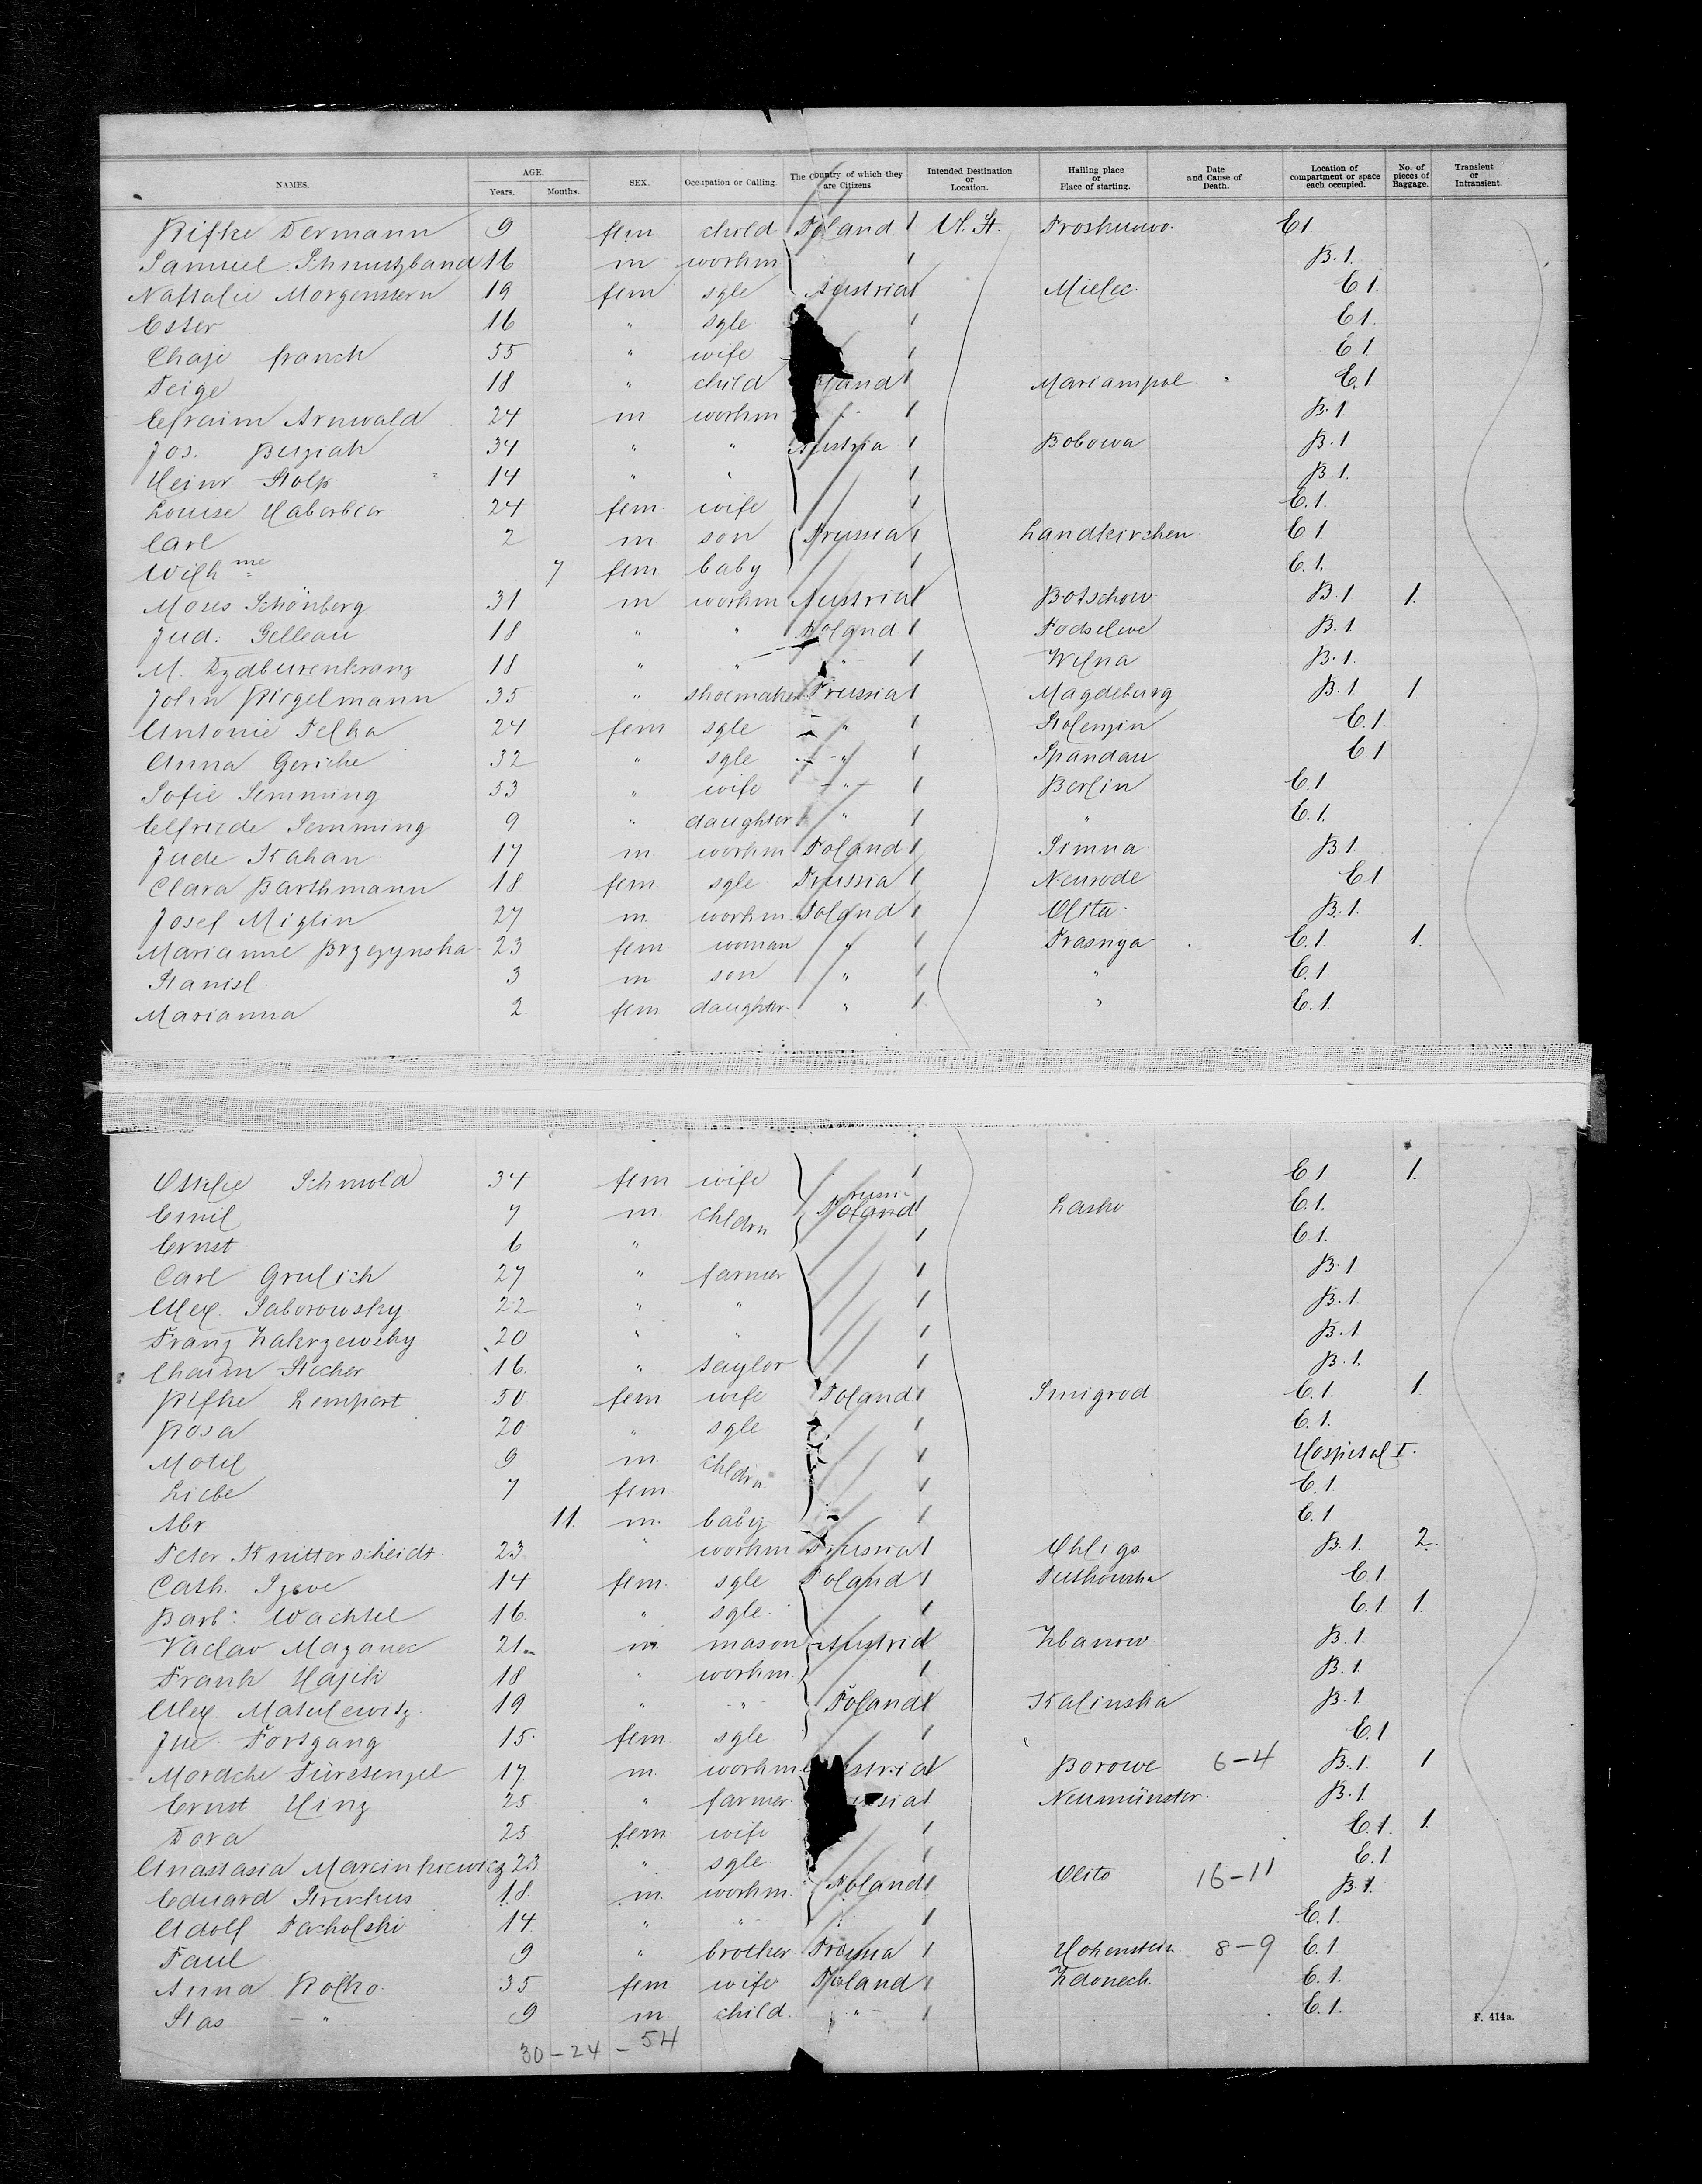 NAMES. AGE. Years. Months. SEX. Occupation or Calling. The Country of which they are Citizens Intended Destination or Location. Hailing place or Place of starting. Date and Cause of Death. Location of compartment or space each occupied. No. of pieces of Baggage. Transient or Intransient.
Rifke Dermann 9 fem child Poland U. St. E1
Samuel Schmutzband 16 m workm B. 1.
Naftalie Morgenstern 19 fem sgle Austria Mielec E1.
Ester 16 " sgle E1.
Chaje 55 " wife E.1
Feige 18 " child Mariampol E.1
Efraim Arnwald 24 m workm B. 1
Jos. 34 " " Austria Bobowa B. 1
Heinr Stolp 14 " " B 1.
Louise Haberbier 24 fem wife E.1.
Carl 2 m son Prussia Landkirchen E 1
Wilhme 7 fem baby E. 1.
Moses Schönberg 31 m workm Austria Botschow B. 1 1.
Jud. 18 " " Poland B. 1
M. 18 " " " Wilna B. 1.
John Riegelmann 35 " shoemaker Prussia Magdeburg B. 1 1.
Antonie Pelka 24 fem sgle " E.1.
Anna Gericke 32 " sgle " Spandau E.1
Sofie Semming 53 " wife " Berlin E.1
Elfriede Semming 9 " daughter " " E.1.
Jude Kahan 17 m workm Poland Simna B 1.
Clara Barthmann 18 fem sgle Prussia Neurode E1
Josef Miglin 27 m workm. Poland Olita B. 1.
Marianne Brzezynska 23 fem woman " E. 1 1.
Stanisl. 3 m son " " E. 1.
Marianna 2 fem daughter " " E. 1.
Ottilie Schmold 34 fem wife E. 1 1.
Emil 7 m. chldrn Poland Lasko E. 1.
Ernst 6 " E 1.
Carl Grulich 27 " farmer B. 1
Alex. Saborowsky 22 " " B. 1.
Franz Zakrzewsky 20 " " B. 1
Chaim Stecher 16. " taylor B. 1.
Rifke Lempert 50 fem wife Poland Smigrod E. 1. 1
Rosa 20 " sgle E. 1.
Motel 9 m. chldrn Hospital I.
Liebe 7 fem E. 1.
Abr 11. m. baby E. 1
Peter Knitterscheidt 23 " workm Prussia Ohligs B. 1. 2.
Cath. 14 fem. sgle Poland E1
Barb. Wachtel 16 " sgle. E.1 1
Vaclav Mazanec 21 m mason Austria Zbanow B. 1.
Frank Hajek 18 " workm. B. 1.
Alex. Matulewitz 19 " " Poland Kalinska B. 1.
Fortgang 15. fem. sgle E.1
Mordche Fürstenzel 17 m. workm Borowe 6-4 B. 1. 1
Ernst Hinz 25. " farmer Neumünster. B. 1
Dora 25 fem wife E.1. 1.
Anastasia Marcinkiewicz 23 " sgle. E.1
Eduard 18. m. workm. Poland Olito 16-11 B. 1.
Adolf Pacholski 14 " " E. 1.
Paul 9 " brother Prussia Hohenstein 8-9 E. 1
Anna Rolko. 35 fem wife Poland E. 1.
Stas " 9 m child. " E. 1.
30-24-54
F. 414a.